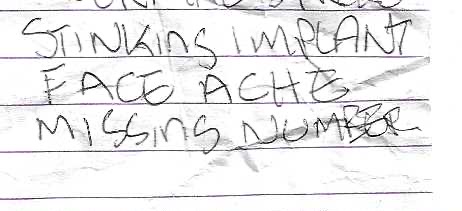 STINKING IMPLANT
FACE ACHE
MISSING NUMBER